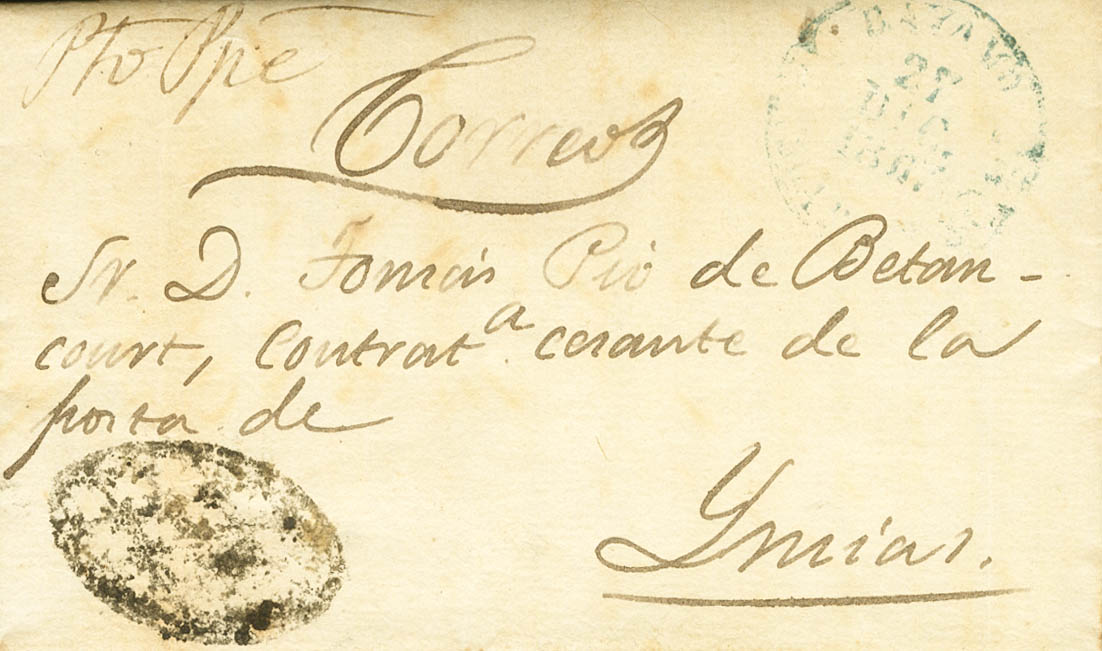 Pto Ppe
Correos
Sr. D. Tomás Pio de Betan-
court, Contrat a cesante de la
posta de
Ymias.
27
DIC